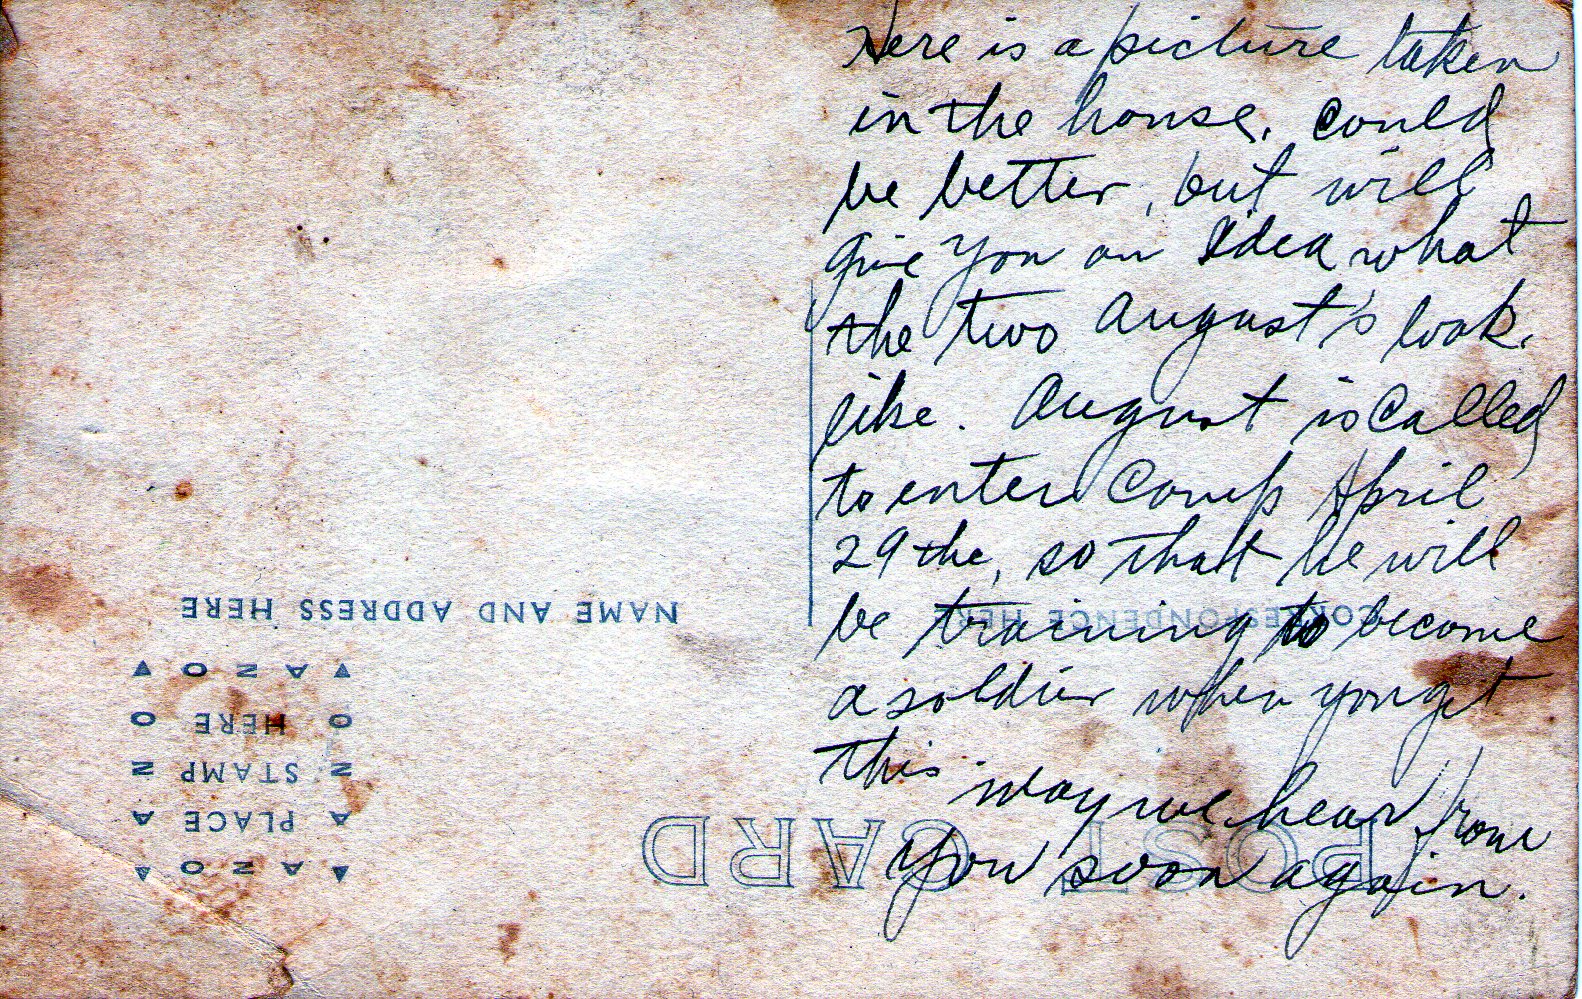 Here is a picture taken
in the house, could
be better, but will
give you an idea what
the two August's look
like. August is called
to enter Camp April
29 the, so that he will
be training to become
a soldier when you get
this. May we hear from
you soon again.
POST CARD
CORRESPONDENCE HERE
NAME AND ADDRESS HERE
▲ AZO ▲
A PLACE A
Z STAMP Z
O HERE O
▼ AZO ▼